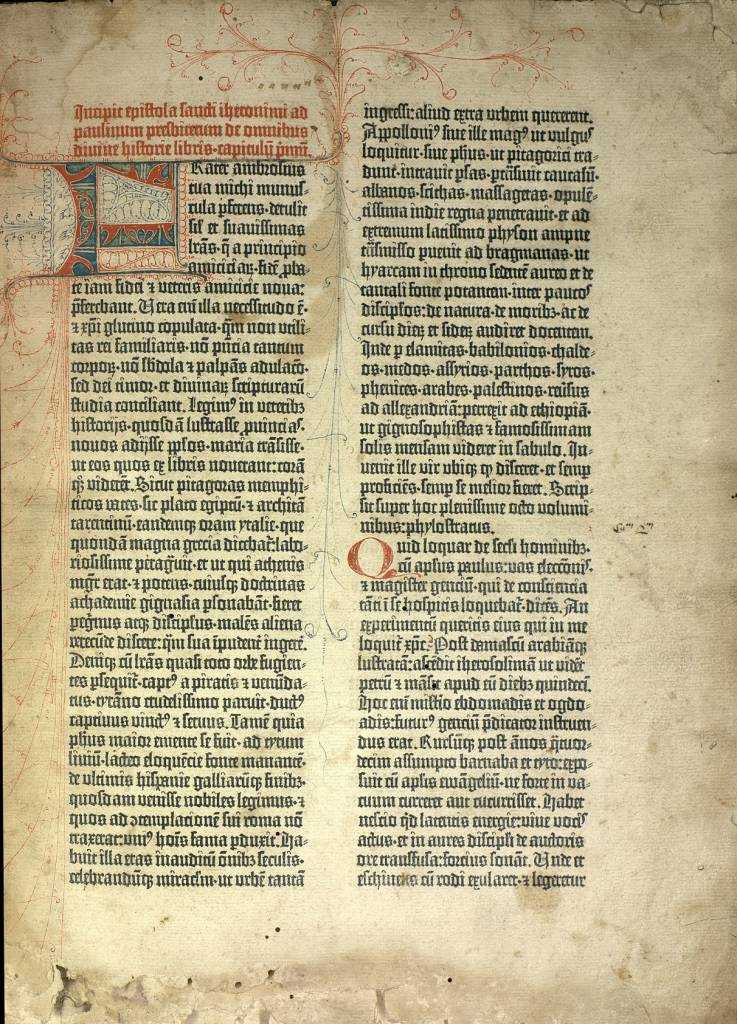 Incipit epistola sancti iheronimi ad
paulinum presbiterum de omnibus
divine historie libris· capitulū pmū.
Frater ambrosius
tua michi munus⸗
cula pferens· detulit
sil et suavissimas
lrās· q̄ a principio
amiciciaꝝ· fidē pba⸗
te iam fidei ⁊ veteris amicicie nova:
pferebant. Vera eni illa necessitudo ē·
⁊ xpi glutino copulata· qm non utili⸗
tas rei familiaris· nō pntia tantum
corpoꝝ· nō sbdola ⁊ palpās adulacō·
sed dei timor· et divinaꝝ scripturarū
studia conciliant. Legimꝰ in veteribꝫ
historijs· quosdā lustrasse pvincias·
novos adijsse pplos· maria trāsisse·
ut eos quos ex libris noverant: corā
qꝫ viderēt. Sicut pitagoras memphi⸗
ticos vates· sic plato egiptū· ⁊ architā
tarentinū· eandemqꝫ oram ytalie· que
quondā magna grecia dicebat̄: labo⸗
riosissime peragvit· et ut qui athenis
mgr̄ erat· ⁊ potens· cuiusqꝫ doctrinas
achademie gignasia psonabāt· fieret
pegrinus atqꝫ discipulus· malēs aliena
verecūde discere: qm̄ sua ipudent̄ ingere.
Deniqꝫ cū lrās quasi toto orbe fugien⸗
tes psequit̄· captꝰ a piratis ⁊ venūda⸗
tus· tyrāno crudelissimo paruit· ductꝰ
captivus vinctꝰ ⁊ servus. Tamē quia
phus maior emente se fuit· ad tytum
liviū· lacteo eloquēcie fonte manantē·
de ultimis hispanie galliarūqꝫ finibꝫ·
quosdam venisse nobiles legimus· ⁊
quos ad ɔtemplationē sui roma nō
traxerat: uniꝰ hoīs fama pduxit. Ha⸗
buit illa etas inauditū ōnibꝫ seculis·
celebrandūqꝫ miraclm· ut urbē tantā
ingressi: aliud extra urbem quererent.
Appolloniꝰ sive ille magꝰ ut vulgus
loquitur· sive phus· ut pitagorici tra⸗
dunt· intravit psas· ptrāsivit caucasū·
albanos· scithas· massagetas· opulē⸗
tissima indie regna penetravit· et ad
extremum latissimo physon ampne
trāsmisso puenit ad bragmanas· ut
hyarcam in throno sedentē aureo et de
tantali fonte potantem· inter paucos
discipulos: de natura· de moribꝫ· ac de
cursu dieꝝ et sideꝝ audiret docentem.
Inde p elamitas· babilonios· chalde⸗
os· medos· assyrios· parthos· syros·
phenices· arabes· palestinos· revsus
ad allexandriā: perrexit ad ethiopiā·
ut gignosophistas ⁊ famosissimam
solis mensam videret in sabulo. In⸗
venit ille vir ubiqꝫ qd̄ disceret· et semp
proficiēs· semp se melior fieret. Scrip⸗
sit super hoc plenissime octo volumi⸗
nibus: phylostratus.
Quid loquar de secli hominibꝫ·
cū aplus paulus: vas eleccōis·
⁊ magister gentiū· qui de consciencia
tāti ī se hospitis loquebat̄· dicēs. An
experimentū queritis eius qui in me
loquit̄ xpc. Post damascū arabiāqꝫ
lustratā: ascēdit iherosolimā ut vidēt
petrū ⁊ māsit apud eū diebꝫ quindeci.
Hoc eni mistio ebdomadis et ogdo⸗
adis: futurꝰ gentiū pdicator instruen⸗
dus erat. Rursūqꝫ post ānos qtuor⸗
decim assumpto barnaba et tyto: expo⸗
suit cū aplis ewāgeliū· ne forte in va⸗
cuum curreret aut cucurrisset. Habet
nescio qd latentis energie: vive vocis
actus· et in aures discipli de auctoris
ore transfusa: forcius sonat. Unde et
eschineus cū rodi exularet· ⁊ legeretur